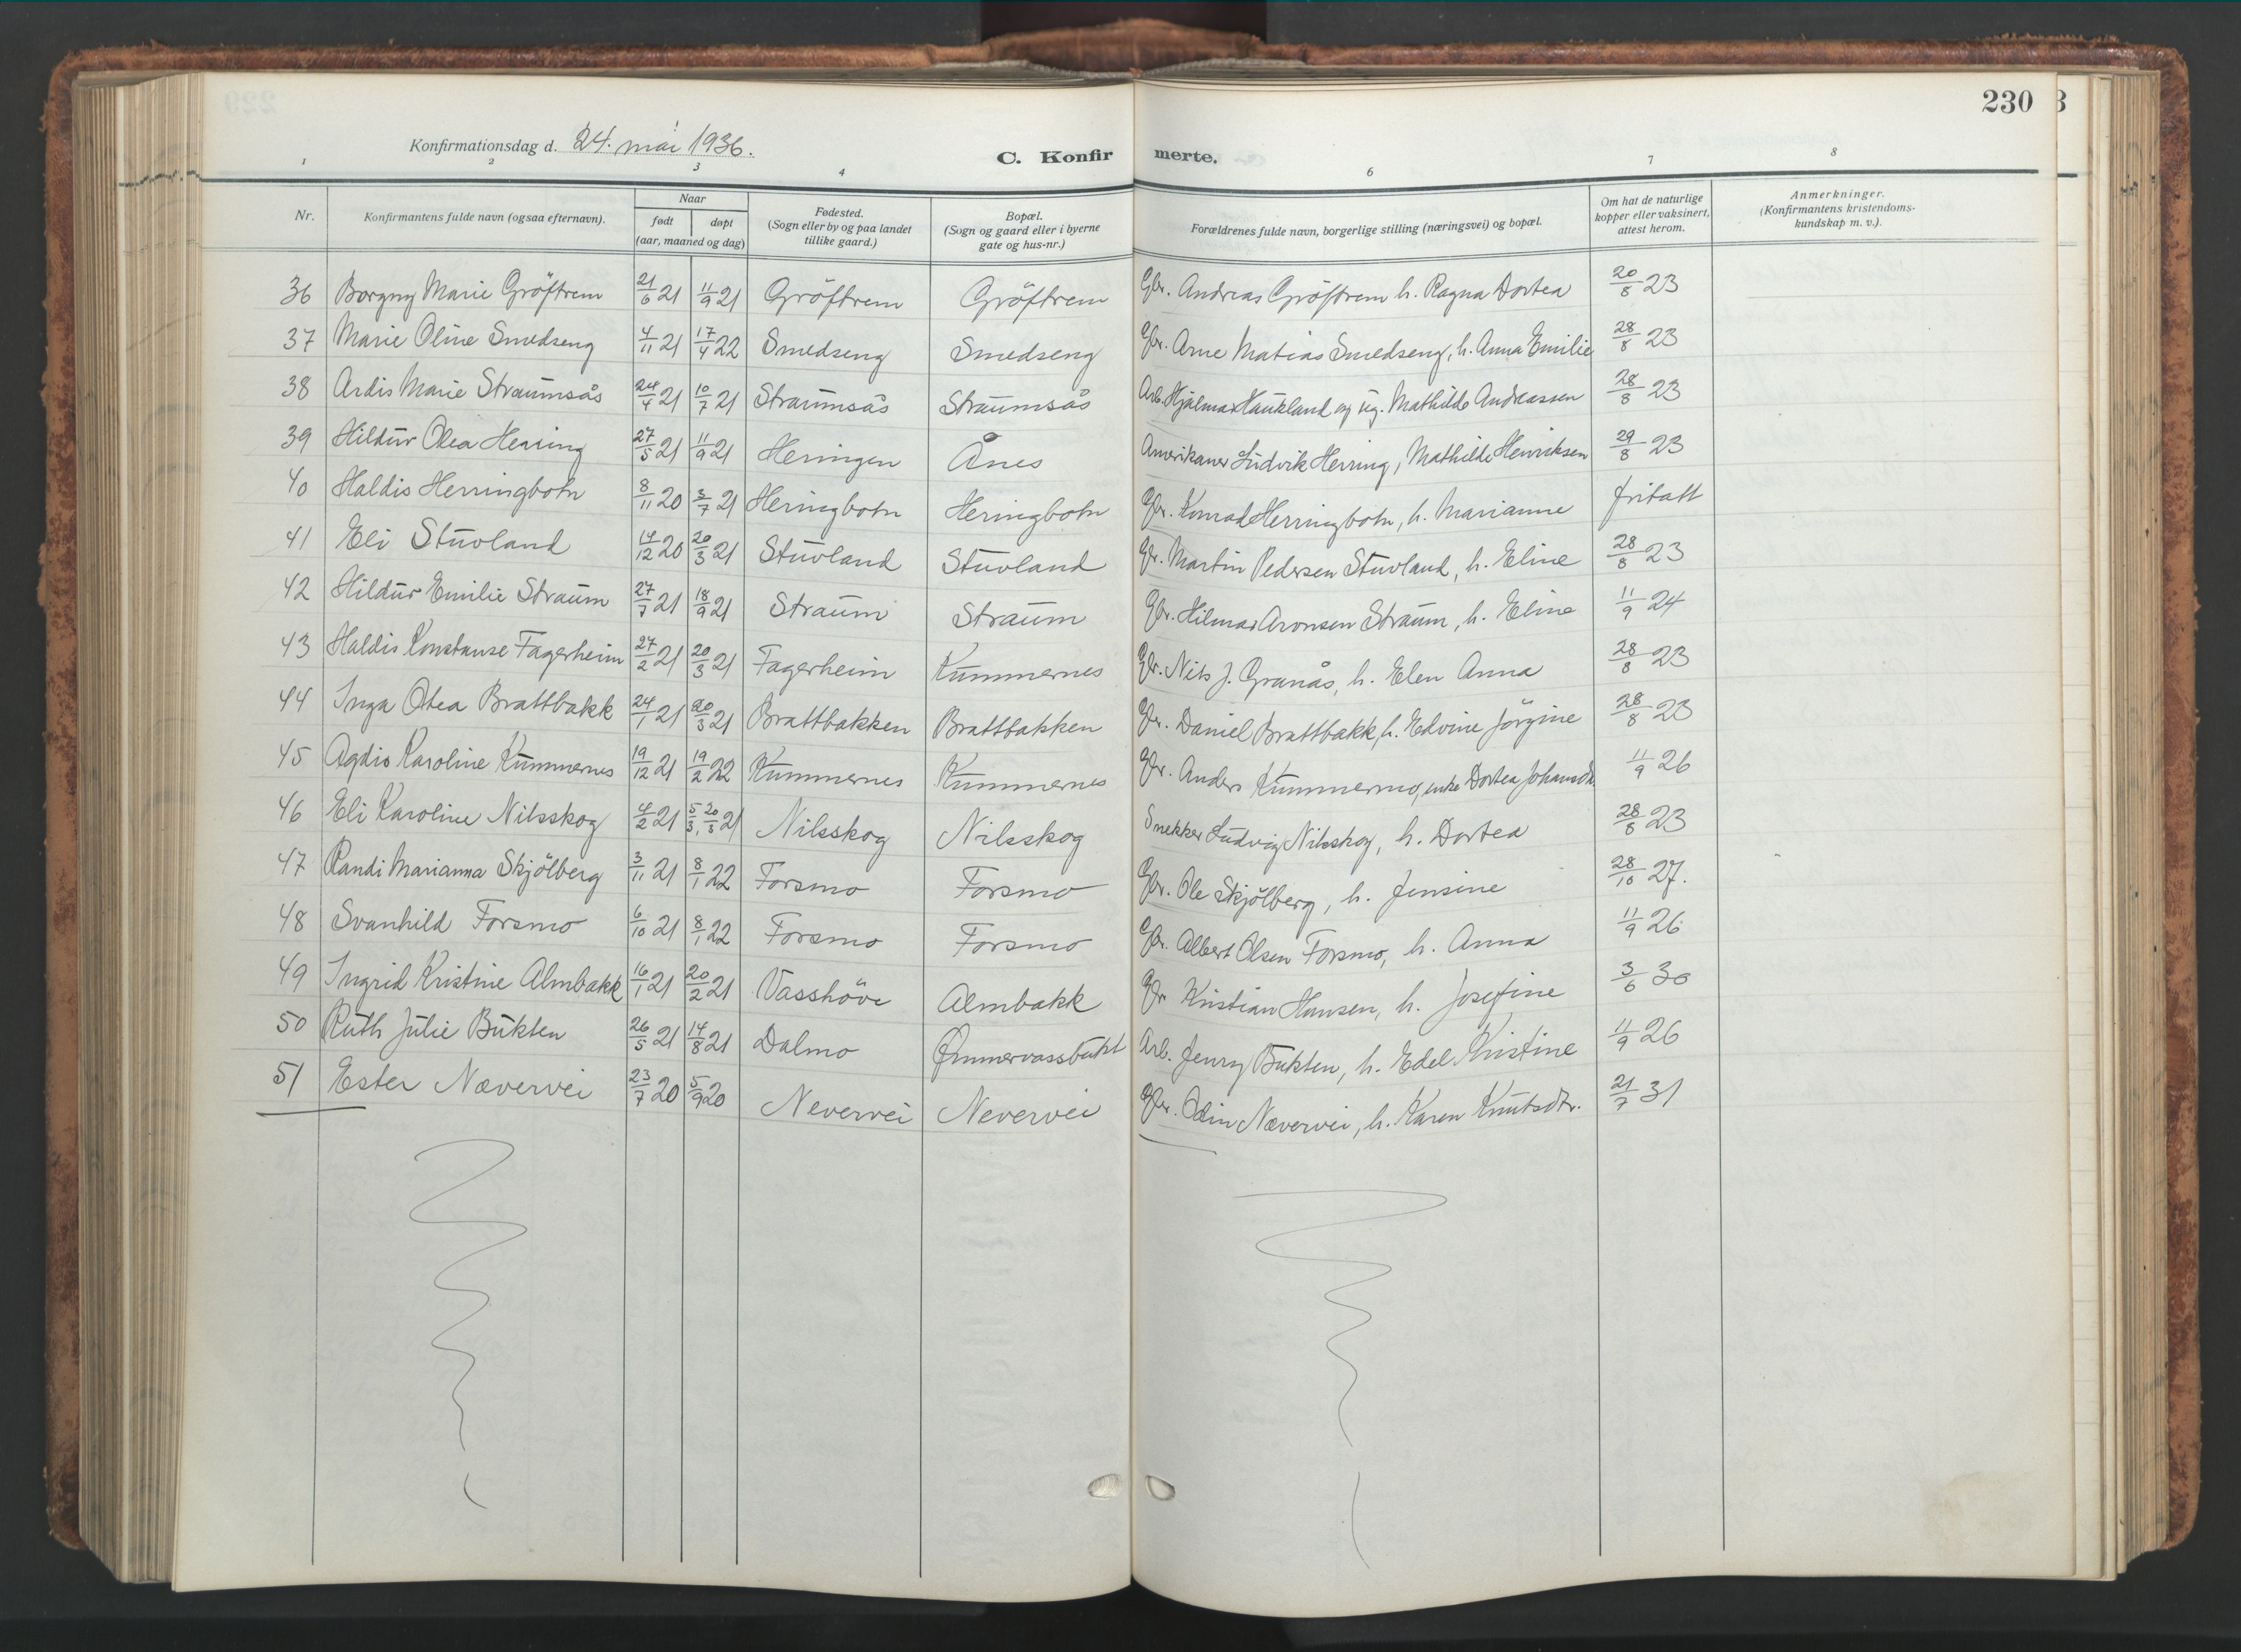 230
Konfirmationsdag d. 24. mai 1936.
C. Konfirmerte.
1 2 3 4 6 7 8
Nr. | Konfirmantens fulde navn (ogsaa efternavn). | Naar født døpt (aar, maaned og dag) | Fødested. (Sogn eller by og paa landet tillike gaard.) | Bopæl. (Sogn og gaard eller i byerne gate og hus-nr.) | Forældrenes fulde navn, borgerlige stilling (næringsvei) og bopæl. | Om hat de naturlige kopper eller vaksinert, attest herom. | Anmerkninger. (Konfirmantens kristendomskundskap m. v.).
36 Borgny Marie Gröftrem 21/6 21 11/9 21 Gröftrem Gröftrem Gbr. Andreas Gröftrem h. Ragna Dortea 20/8 23
37 Marie Oline Smedseng 4/11 21 17/4 22 Smedseng Smedseng Gbr. Arne Matias Smedseng, h. Anna Emilie 28/8 23
38 Ardis Marie Straumsås 24/4 21 10/7 21 Straumsås Straumsås Arb. Hjalmar Haukland og ug. Mathilde Andreassen 28/8 23
39 Hildur Olea Herring 27/5 21 11/9 21 Heringen Ånes Amerikaner Ludvik Herring, Mathilde Henriksen 29/8 23
40 Haldis Herringbotn 8/11 20 3/7 21 Heringbotn Heringbotn Gbr. Konrad Herringbotn, h. Marianne fritatt
41 Eli Stuvland 14/12 20 20/3 21 Stuvland Stuvland Gbr. Martin Pedersen Stuvland, h. Eline 28/8 23
42 Hildur Emilie Straum 27/7 21 18/9 21 Straum Straum Gbr. Hilmar Aronsen Straum, h. Eline 11/9 24
43 Haldis Konstanse Fagerheim 27/2 21 20/3 21 Fagerheim Kummernes Gbr. Nils J. Granås, h. Elen Anna 28/8 23
44 Inga Otea Brattbakk 24/1 21 20/3 21 Brattbakken Brattbakken Gbr. Daniel Brattbakk, h. Edvine Jörgine 28/8 23
45 Agdis Karoline Kummernes 19/12 21 19/2 22 Kummernes Kummernes Gbr. Anders Kummernes, enke Dortea Johansdt. 11/9 26
46 Eli Karoline Nilsskog 4/2 21 5/3, 20/3 21 Nilsskog Nilsskog Snekker Ludvig Nilsskog, h. Dortea 28/8 23
47 Randi Marianna Skjölberg 3/11 21 8/1 22 Forsmo Forsmo Gbr. Ole Skjölberg, h. Jensine 28/10 27.
48 Svanhild Forsmo 6/10 21 8/1 22 Forsmo Forsmo Gbr. Albert Olsen Forsmo, h. Anna 11/9 26
49 Ingrid Kristine Almbakk 16/1 21 20/2 21 Vasshöve Almbakk Gbr Kristian Hansen, h. Josefine 3/6 30
50 Ruth Julie Bukten 26/5 21 14/8 21 Dalmo Ømmervassbukt Arb. Jenry Bukten, h. Edel Kristine 11/9 26
51 Ester Nævervei 23/7 20 5/9 20 Nevervei Nevervei Gbr. Odin Nævervei, h. Karen Knutsdtr. 21/7 31